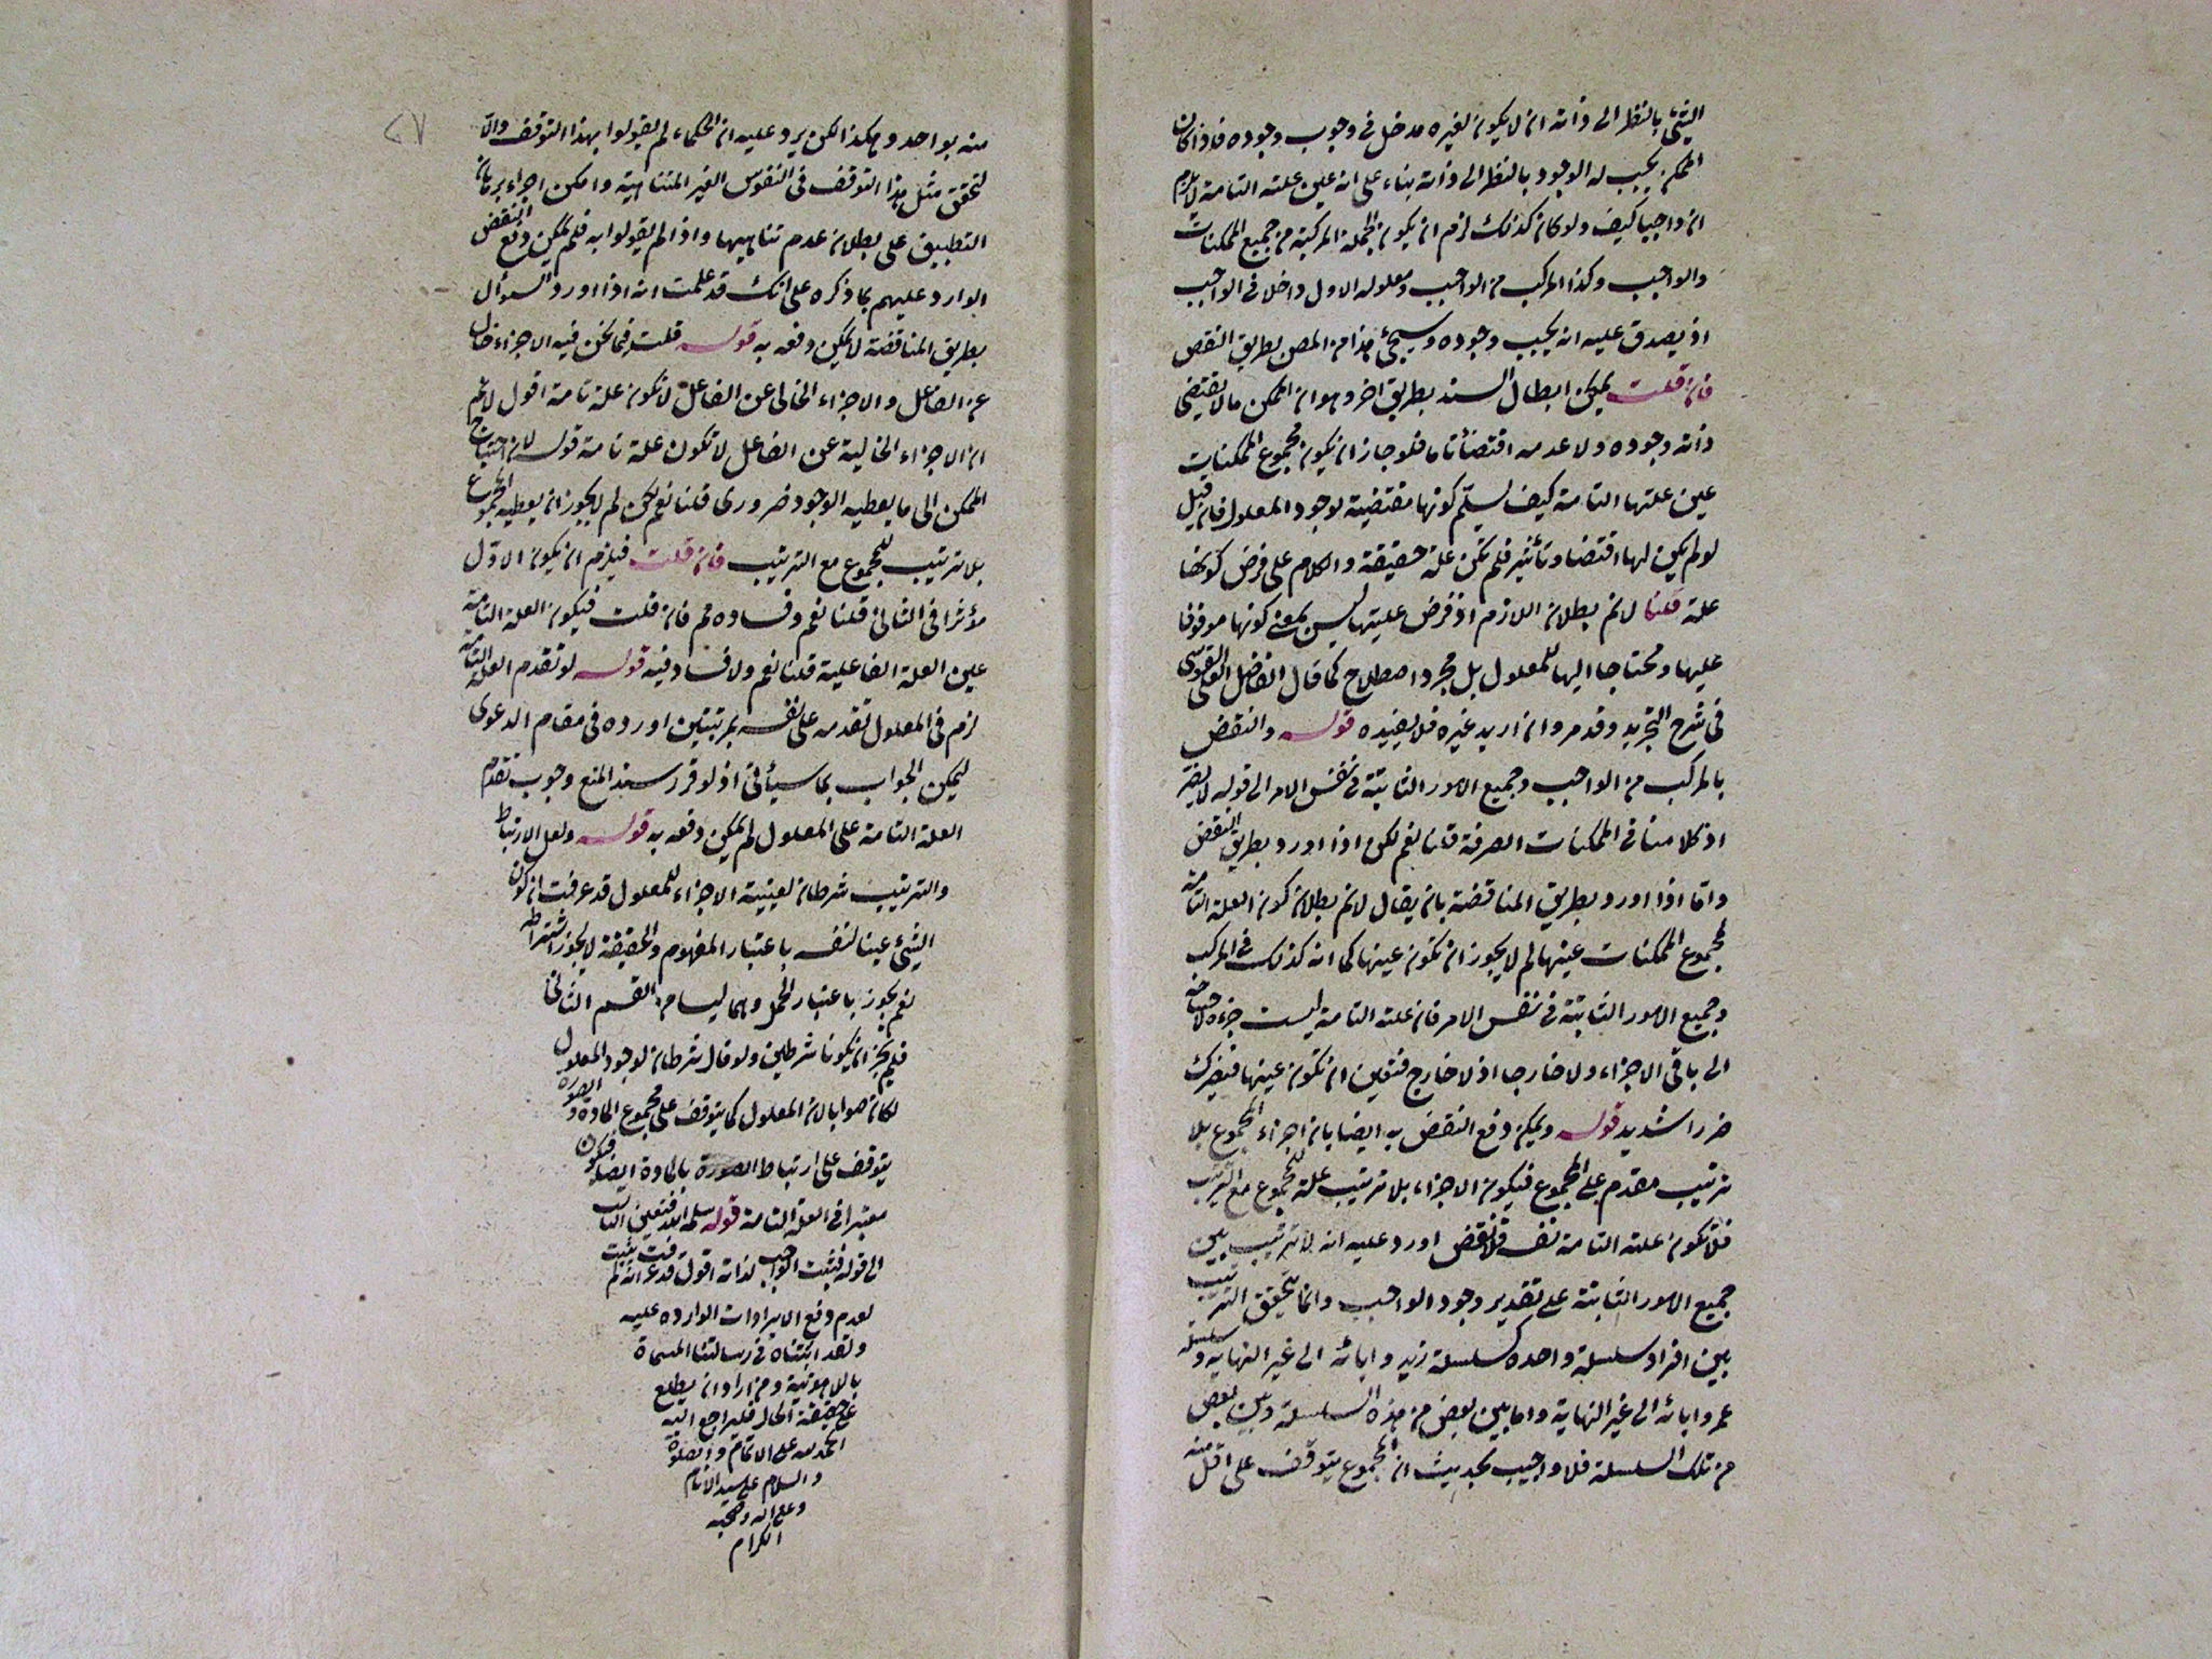 الشئ بالنظر الى ذاته ان لا يكون لغيره مدخل فى وجوب وجوده فاذا كان
الممكن يجب له الوجود بالنظر الى ذاته بناء على انه عين علته التامة لا يلزم
ان واجبا كيف ولو كان كذلك لزم ان يكون الجملة المركبة من جميع الممكنات
والواجب وكذا المركب من الواجب ومعلوله الاول داخلا فى الواجب
اذ يصدق عليه انه يجب وجوده وسيجئ هذا من المص بطريق النقض
فان قلت يمكن ابطال السند بطريق اخر وهو ان الممكن ما لا يقتضى
ذاته وجوده ولا عدمه اقتضائا تاما فلو جاز ان يكون مجموع الممكنات
عين علتها التامة كيف يسلّم كونها مقتضية لوجود المعلول فان قيل
لو لم يكن لها اقتضا وتأثير فلم تكن علة حقيقة والكلام على فرض كونها
علة قلنا لا نم بطلان اللازم اذ فرض عليتها ليس بمعنى كونها موقوفا
عليها ومحتاجا اليها للمعلول بل مجرد اصطلاح كما قال الفاضل القوشى
فى شرح التجريد وقد مر وان اريد غيره فلا يفيده قوله والنقض
بالمركب من الواجب وجميع الامور الثابتة فى نفس الامر الى قوله لا يضر
اذ كلامنا فى الممكنات الصرفة قلنا نعم لكن اذا اورد بطريق النقض
واما اذا اورد بطريق المناقضة بان يقال لا نم بطلان كون العلة التامة
لمجموع الممكنات عينها لم لا يجوز ان تكون عينها كما انه كذلك فى المركب
وجميع الامور الثابتة فى نفس الامر فان علته التامة ليست جزءه لاحتياجه
الى باقى الاجزاء ولا خارجا اذ لا خارج فتعين ان تكون عينها فيضرك
ضررا شديدا قوله ويمكن دفع النقض به ايضا بان اجزاء المجموع بلا
ترتيب مقدم على المجموع فيكون الاجزاء بلا ترتيب علة للمجموع مع الترتيب
فلا تكون علته التامة نفسه فلا نقض اورد عليه انه لا ترتيب بين
جميع الامور الثابتة على تقدير وجود الواجب وانما يتحقق الترتيب
بين افراد سلسلة واحدة كسلسلة زيد وابائه الى غير النهاية وسلسلة
عمرو وابائه الى غير النهاية واما بين بعض من هذه السلسلة وبين بعض
من تلك السلسلة فلا واجيب بحديث ان المجموع يتوقف على اقل منه
٢٧
منه بواحد وهكذا لكن يرد عليه ان الحكماء لم يقولوا بهذا التوقف والّا
لتحقق مثل هذا التوقف فى النفوس الغير المتناهية وامكن اجراء برهان
التطبيق على بطلان عدم تناهيها واذا لم يقولوا به فلم يمكن دفع النقض
الوارد عليهم بما ذكره على انك قد علمت انه اذا اورد السؤال
بطريق المناقضة لا يمكن دفعه به قوله قلت فما نحن فيه الاجزاء خال
عن الفاعل والاجزاء الخالى عن الفاعل لا تكون علة تامة اقول لا نم
ان الاجزاء الخالية عن الفاعل لا تكون علة تامة قوله لان احتياج
الممكن الى ما يعطيه الوجود ضرورى قلنا نعم لكن لم لا يجوز ان يعطيه المجموع
بلا ترتيب للمجموع مع الترتيب فان قلت فيلزم ان يكون الاول
مؤثرا فى الثانى قلنا نعم وفساده مم فان قلت فيكون العلة التامة
عين العلة الفاعلية قلنا نعم ولا فساد فيه قوله لو تقدم العلة التامة
لزم فى المعلول تقدمه على نفسه بمرتبتين اورده فى مقام الدعوى
ليمكن الجواب بما سيأتى اذ لو قرر سند المنع وجوب تقدم
العلة التامة على المعلول لم يمكن دفعه به قوله ولعل الارتباط
والترتيب شرطان لعينية الاجزاء للمعلول قد عرفت ان كون
الشئ عينا لنفسه باعتبار المفهوم والحقيقة لا يجوز اشتراطه
نعم يجوز باعتبار الحمل وهما ليسا من القسم الثانى
فلم يجز ان يكونا شرطين ولو قال شرطان لوجود المعلول
لكان صوابا لان المعلول كما يتوقف على مجموع المادة والصورة
يتوقف على ارتباط الصورة بالمادة ايضا فيكون
معتبرا فى العلة التامة قوله فتعين الثالث
الى قوله فثبت الواجب لذاته اقول قد عرفت انه لم يثبت
لعدم دفع الايرادات الواردة عليه
وقد اثبتناه فى رسالتنا المسماة
باللاهوتية ومن اراد ان يطلع
على حقيقة الحال فليراجع اليه
الحمد لله على الاتمام والصلوة
والسلام على سيد الانام
وعلى اله وصحبه
الكرام